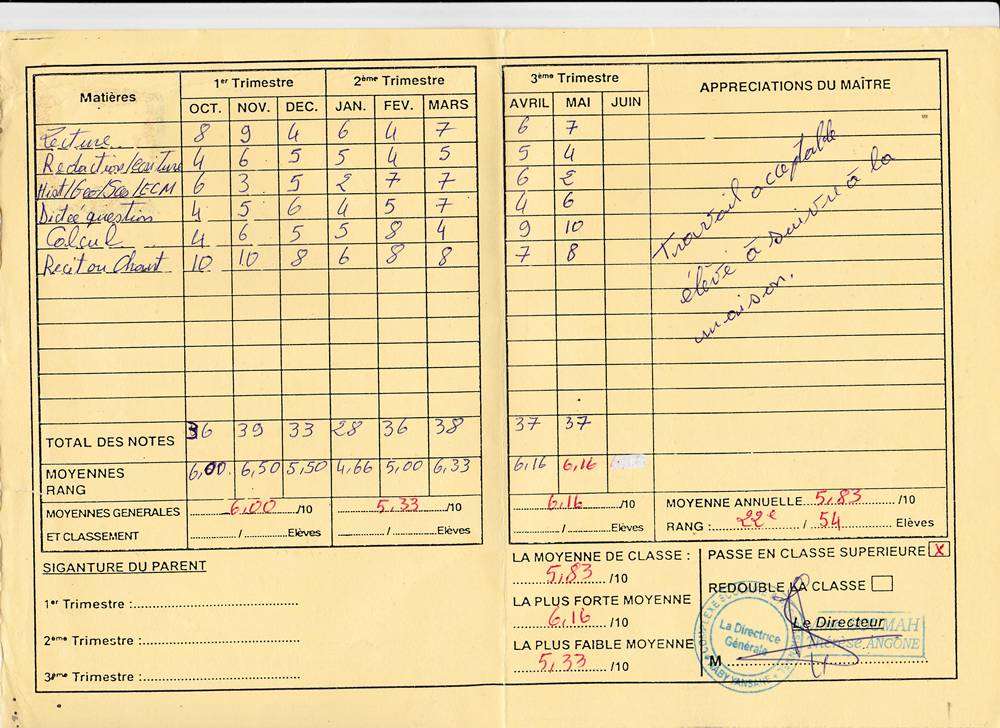 Matières 1er Trimestre 2ème Trimestre
OCT. NOV. DEC. JAN. FEV. MARS
Lecture 8 9 4 6 4 7
Rédaction/écriture 4 6 5 5 4 5
Hist/Géo/Sces/ECM 6 3 5 2 7 7
Dictée question 4 5 6 4 5 7
Calcul 4 6 5 5 8 4
Recit ou Chant 10 10 8 6 8 8
TOTAL DES NOTES 36 39 33 28 36 38
MOYENNES 6,00 6,50 5,50 4,66 5,00 6,33
RANG
MOYENNES GENERALES 6,00 /10 5,33 /10
ET CLASSEMENT / Elèves / Elèves
SIGANTURE DU PARENT
1er Trimestre :
2ème Trimestre :
3ème Trimestre :
3ème Trimestre APPRECIATIONS DU MAÎTRE
AVRIL MAI JUIN
6 7
5 4
6 2
4 6
9 10
7 8
Travail acceptable
élève à suivre à la
maison.
37 37
6,16 6,16
6,16 /10 MOYENNE ANNUELLE 5,83 /10
/ Elèves RANG : 22e / 54 Elèves
LA MOYENNE DE CLASSE :
5,83 /10
LA PLUS FORTE MOYENNE
6,16 /10
LA PLUS FAIBLE MOYENNE
5,33 /10
PASSE EN CLASSE SUPERIEURE X
REDOUBLE LA CLASSE
Le Directeur
La Directrice
Générale
Thérèse ANGONE
M